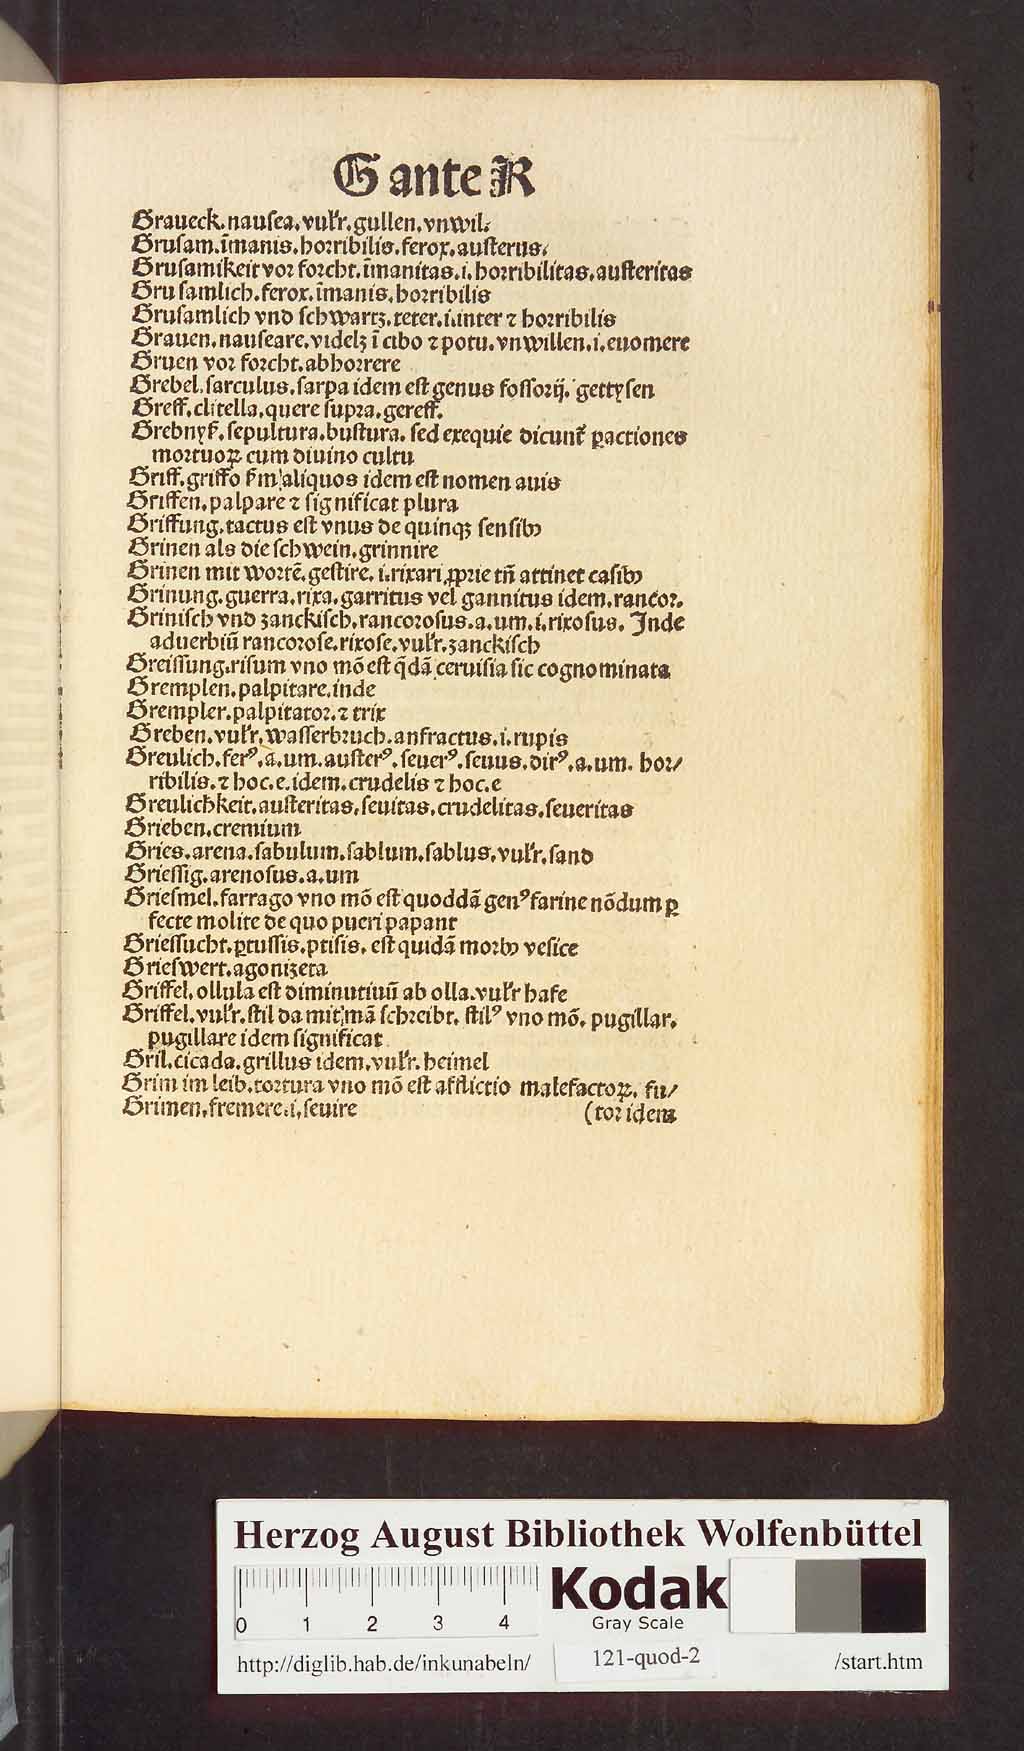 G ante R
Graueck.nausea.vul'r.gullen.vnwil.
Grusam.īmanis.horribilis.ferox.austerus.
Grusamikeit vor forcht.īmanitas.i.horribilitas.austeritas
Gru samlich.ferox.īmanis.horribilis
Grusamlich vnd schwartz.teter.i.inter ⁊ horribilis
Grauen.nauseare.videlꝫ ī cibo ⁊ potu.vnwillen.i.euomere
Gruen vor forcht.abhorrere
Grebel.sarculus.sarpa idem est genus fossorij. gettysen
Greff.clitella.quere supra.gereff.
Grebnyß.sepultura.bustura. sed exequie dicunt̃ ꝑactiones
mortuoꝝ cum diuino cultu
Griff.griffo ẜm aliquos idem est nomen auis
Griffen.palpare ⁊ significat plura
Griffung.tactus est vnus de quinqꝫ sensibꝰ
Grinen als die schwein.grinnire
Grinen mit wortē.gestire.i.rixari ꝓprie tñ attinet casibꝰ
Grinung.guerra.rixa.garritus vel gannitus idem.rancor.
Grinisch vnd zanckisch.rancorosus.a.um.i.rixosus. Inde
aduerbiū rancorose.rixose.vul'r.zanckisch
Greissung.risum vno mō est q̄dā ceruisia sic cognominata
Gremplen.palpitare.inde
Grempler.palpitator.⁊ trix
Greben.vul'r.wasserbruch.anfractus.i.rupis
Greulich.ferꝰ.a.um.austerꝰ.seuerꝰ.seuus.dirꝰ.a.um. hor/
ribilis.⁊ hoc.e.idem.crudelis ⁊ hoc.e
Greulichkeit.austeritas.seuitas.crudelitas.seueritas
Grieben.cremium
Gries.arena.sabulum.sablum.sablus.vul'r.sand
Griessig.arenosus.a.um
Griesmel.farrago vno mō est quoddā genꝰ farine nōdum ꝑ
fecte molite de quo pueri papant
Griessucht.ꝑtussis.ptisis. est quidā morbꝰ vesice
Grieswert.agonizeta
Griffel.ollula est diminutiuū ab olla.vul'r hafe
Griffel.vul'r.stil da mit mā schreibt. stilꝰ vno mō. pugillar.
pugillare idem significat
Gril.cicada.grillus idem.vul'r.heimel
Grim im leib.tortura vno mō est afflictio malefactoꝝ. fu/
Grimen.fremere.i.seuire (tor idem
Herzog August Bibliothek Wolfenbüttel
0 1 2 3 4
Kodak
Gray Scale
http://diglib.hab.de/inkunabeln/ 121-quod-2 /start.htm